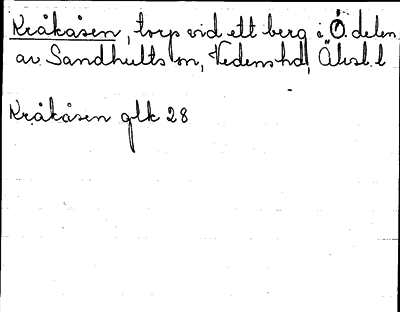 Kråkåsen, torp vid ett berg i Ö. delen
av Sandhults sn, Vedens hd, Älvsb. l
Kråkåsen glk 28